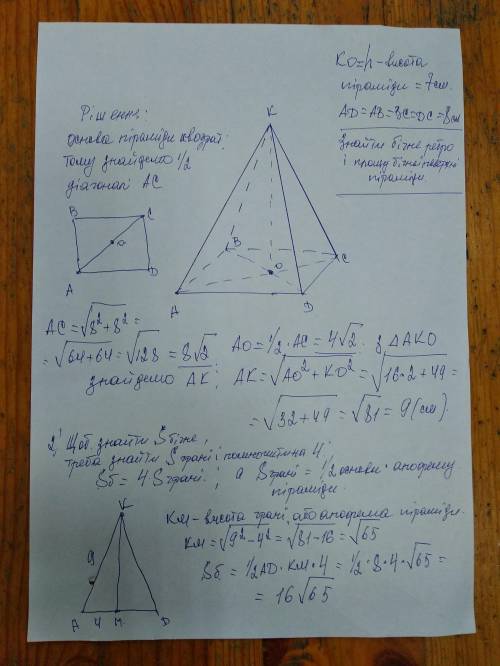 KO=h-висота
піраміди = 7см.
AD=AB=BC=DC=8см
Знайти бічне ребро
і площу бічної поверхні
піраміди.
Рішення:
основа піраміди квадрат;
тому знайдемо 1/2
діагоналі AC
B C
O
A D
K
B
O
C
A D
AC=√8²+8² =
=√64+64=√128=8√2
знайдемо AK;
AO=1/2·AC=4√2. з △AKO
AK=√AO²+KO²=√16·2+49=
=√32+49=√81=9(см).
2) Щоб знайти S бічне,
треба знайти S грані і помножити на 4.
Sб=4·S грані; а S грані=1/2 основи·апофему
піраміди.
KM-висота грані, або апофема піраміди.
KM=√9²-4²=√81-16=√65
Sб.=1/2AD·KM·4=1/2·8·4·√65=
=16√65
K
9
A 4 M D